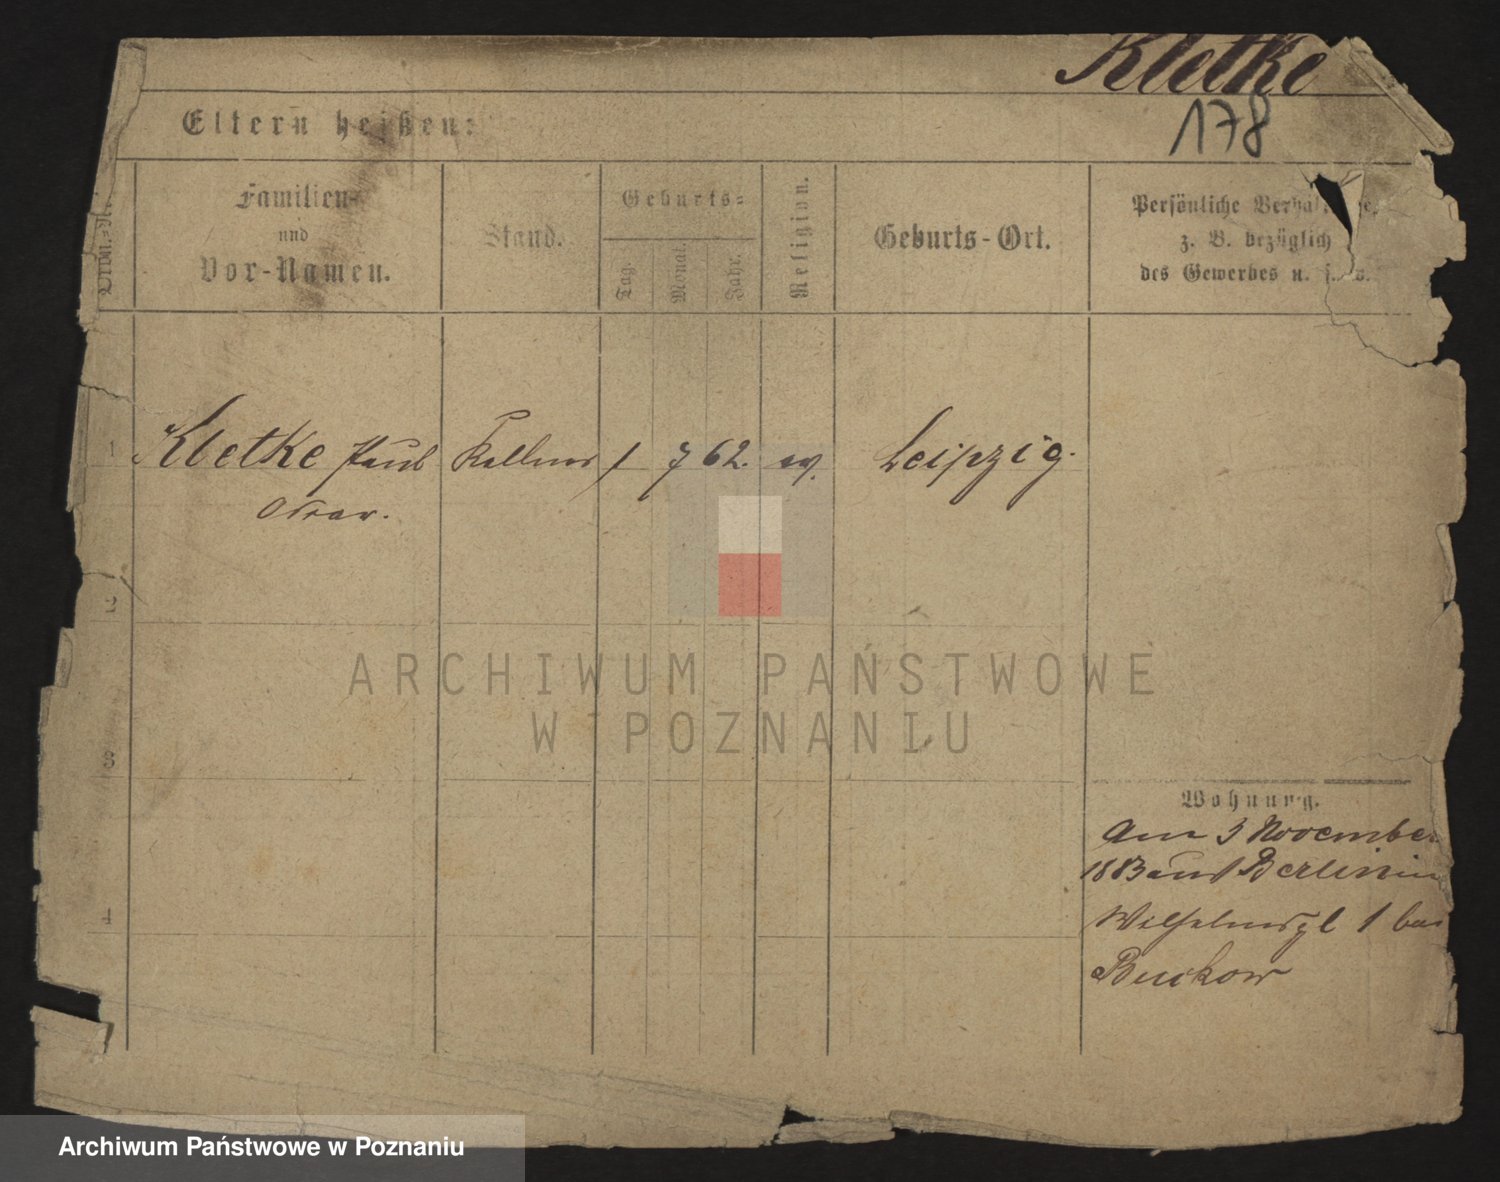 Kletke
178
Eltern heißen:
Ordn.-Nr.
Familien-
und
Vor-Namen.
Stand.
Geburts-
Tag.
Monat.
Jahr.
Religion.
Geburts-Ort.
Persönliche
z. B. bezüglich
des Gewerbes u. s. w.
1 Kletke Paul Kellner 1 7 62. ev. Leipzig.
Oskar.
2
3
4
Wohnung.
Am 3 November
1883 aus Berlin in
Wilhelmspl 1 bei
Buckow
ARCHIWUM PAŃSTWOWE
W POZNANIU
Archiwum Państwowe w Poznaniu